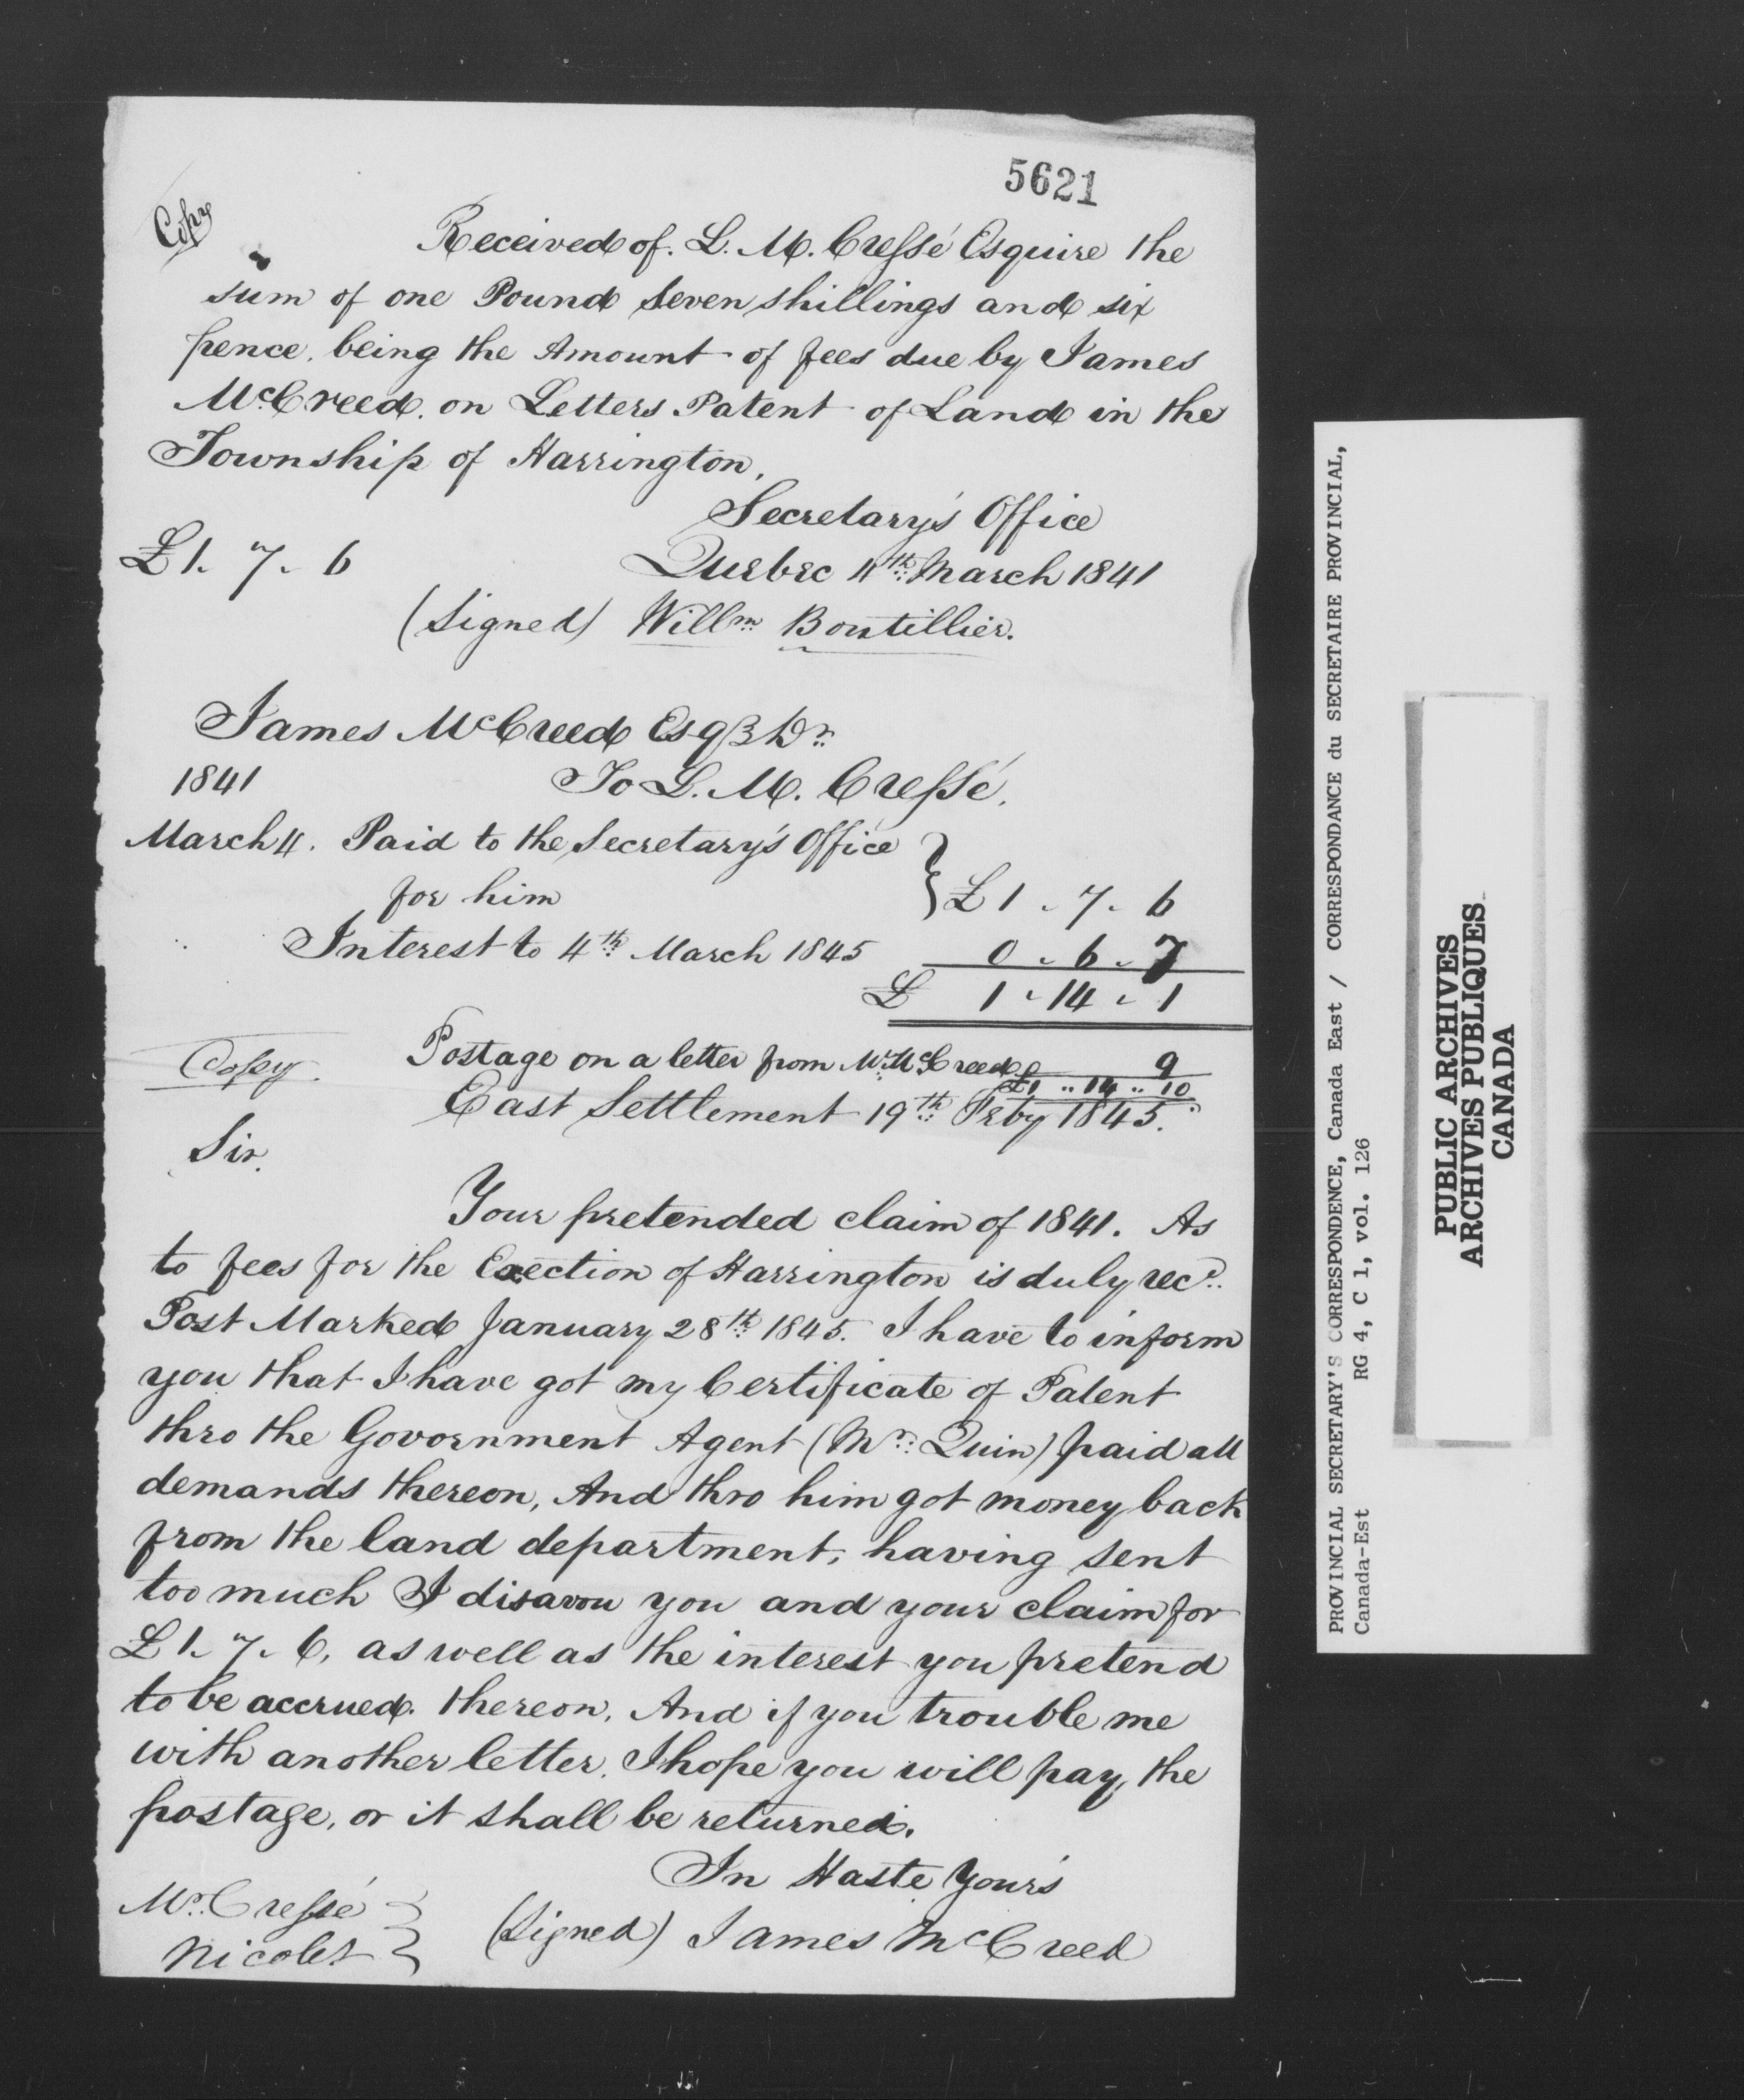 5621
Copy
Received of. L. M. Cressé Esquire the
sum of one Pound Seven shillings and six
pence. being the Amount of fees due by James
McCreed. on Letters Patent of Land in the
Township of Harrington.
Secretary's Office
£1. 7. 6
Quebec 4th March 1841
(Signed) Willm Boutillier.
James McCreed Esqr Dr
1841 To L. M. Cressé.
March 4. Paid to the Secretary's Office
for him } £1. 7. 6
Interest to 4th March 1845 0. 6. 7
£ 1. 14. 1
Postage on a letter from Mr McCreed 9
£1 .. 14 .. 10
Copy. East Settlement 19th Feby 1845.
Sir.
Your pretended claim of 1841. As
to fees for the Exection of Harrington is duly recd.
Post Marked January 28th 1845. I have to inform
you that I have got my Certificate of Patent
thro the Govornment Agent (Mr: Quin) paid all
demands thereon, And thro him got money back
from the land department, having sent
too much I disavou you and your claim for
£1. 7. 6, as well as the interest you pretend
to be accrued. thereon. And if you trouble me
with another letter. I hope you will pay, the
postage, or it shall be returned.
In Haste Your's
Mr. Cressé }
Nicolet } (Signed) James McCreed
PROVINCIAL SECRETARY'S CORRESPONDENCE, Canada East / CORRESPONDANCE du SECRETAIRE PROVINCIAL,
Canada-Est RG 4, C 1, vol. 126
PUBLIC ARCHIVES
ARCHIVES PUBLIQUES
CANADA